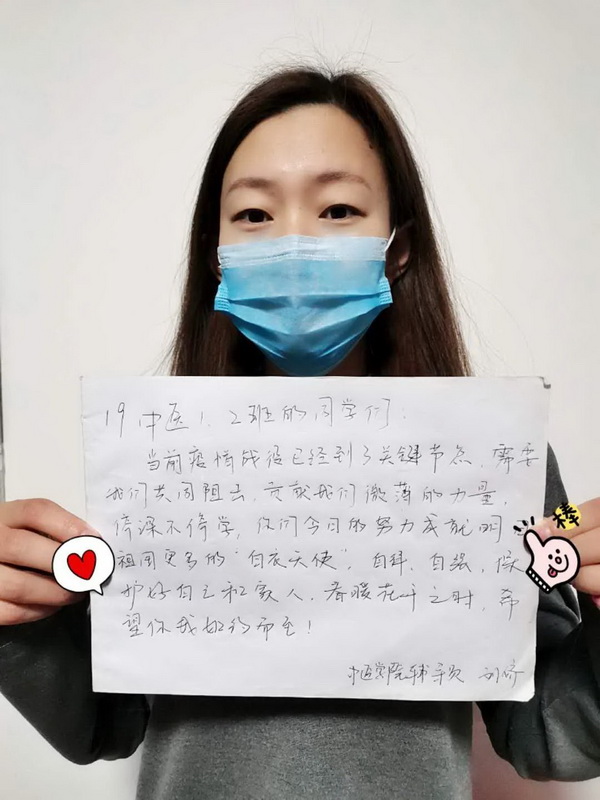 19中医1、2班的同学们:
当前疫情战役已经到了关键节点,需要
我们共同阻击,贡献我们微薄的力量,
停课不停学,你们今日的努力成就明
祖国更多的“白衣天使”,自律、自强,保
护好自己和家人,春暖花开之时,希
望你我如约而至!
中医学院辅导员 刘
棒